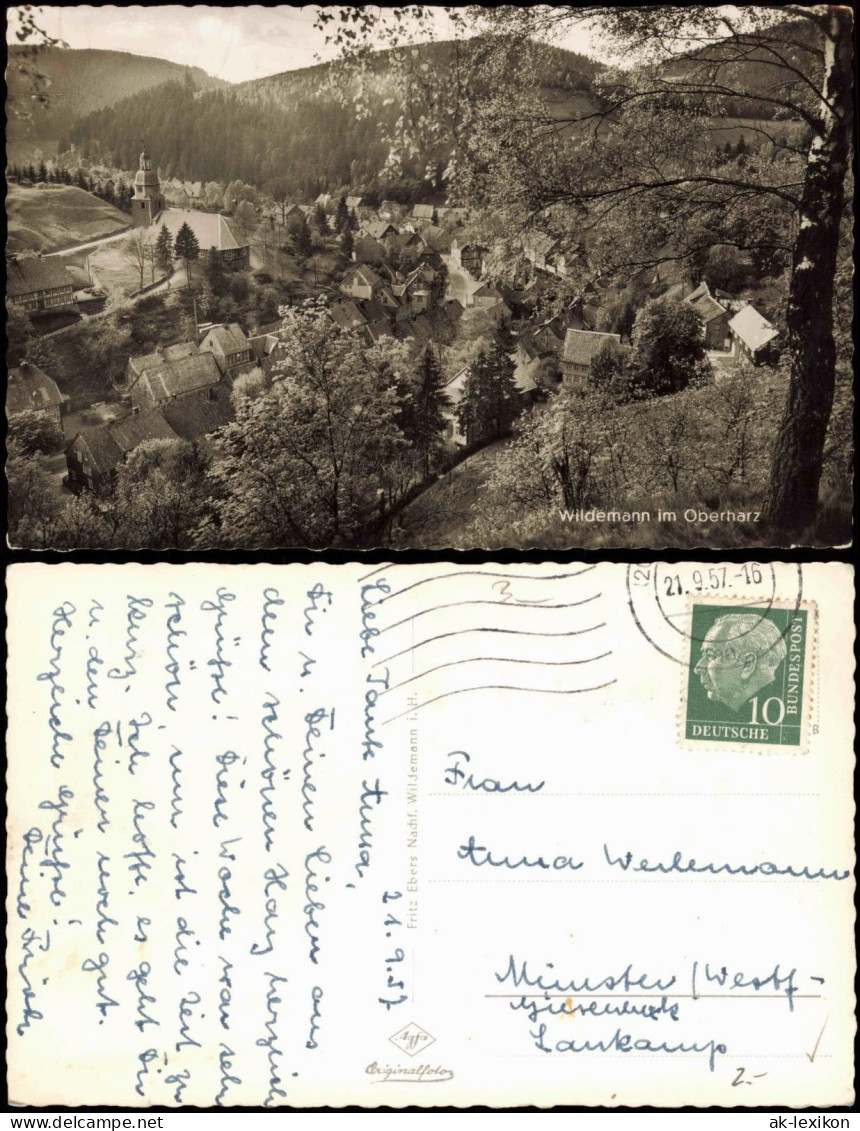 Wildemann im Oberharz
21.9.57.-16
10
DEUTSCHE
BUNDESPOST
B
Liebe Tante Anna,
21.9.57
Dir u. Deinen Lieben aus
dem schönen Harz herzliche
Grüße! Diese Woche war sehr
schön, nur ist die Zeit zu
kurz. Ich hoffe, es geht Dir
u. den Deinen noch gut.
Herzliche Grüße!
Deine
Fritz Ebers Nachf. Wildemann i. H.
Agfa
Originalfoto
Frau
Anna
Münster/Westf-
Lankamp
2.-
www.ansichtskarten-lexikon.de
ak-lexikon